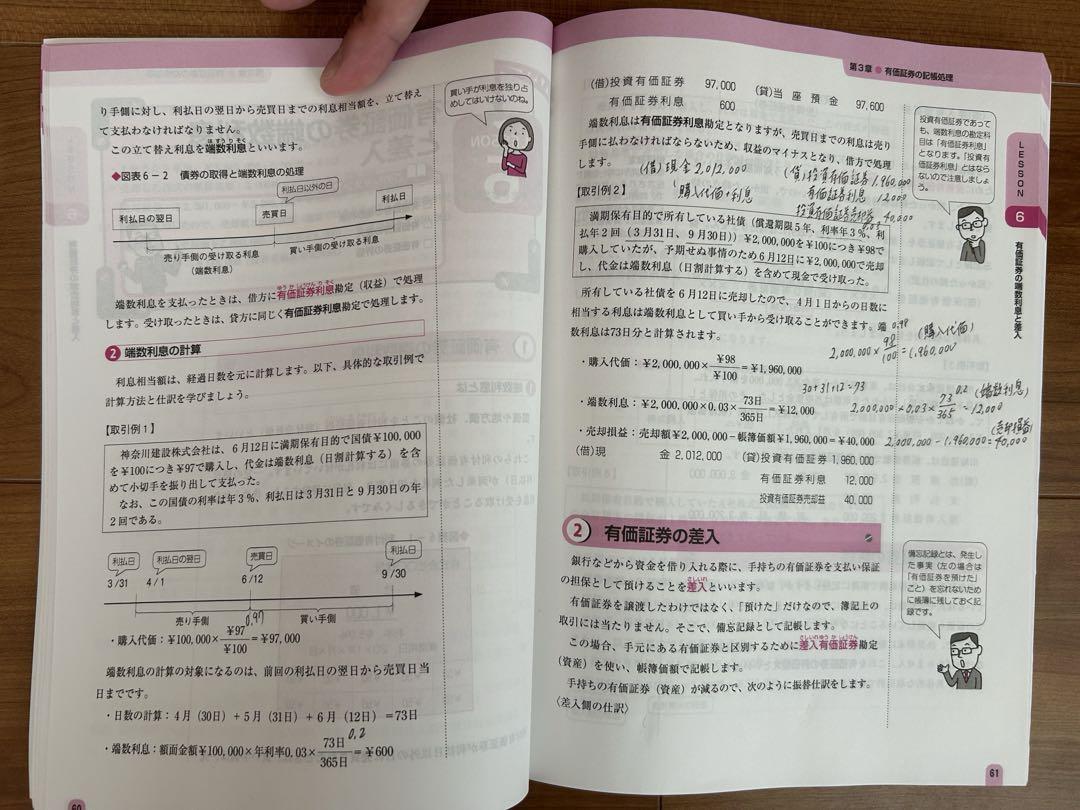 り手側に対し、利払日の翌日から売買日までの利息相当額を、立て替
えて支払わなければなりません。
この立て替え利息を端数利息といいます。
はすうりそく
買い手が利息を独り占
めしてはいけないのね。
◆図表6－2 債券の取得と端数利息の処理
利払日以外の日
利払日の翌日
売買日
利払日
売り手側の受け取る利息
(端数利息)
買い手側の受け取る利息
端数利息を支払ったときは、借方に有価証券利息勘定（収益）で処理
ゆうかしょうけんりそく
します。受け取ったときは、貸方に同じく有価証券利息勘定で処理します。
2 端数利息の計算
利息相当額は、経過日数を元に計算します。以下、具体的な取引例で
計算方法と仕訳を学びましょう。
【取引例1】
神奈川建設株式会社は、6月12日に満期保有目的で国債￥100,000
を￥100につき￥97で購入し、代金は端数利息（日割計算する）を含
めて小切手を振り出して支払った。
なお、この国債の利率は年3％、利払日は3月31日と9月30日の年
2回である。
利払日
利払日の翌日
売買日
利払日
3/31
4/1
6/12
9/30
売り手側
買い手側
0.97
・購入代価：￥100,000×￥97/￥100＝￥97,000
端数利息の計算の対象になるのは、前回の利払日の翌日から売買日当
日までです。
・日数の計算：4月（30日）＋5月（31日）＋6月（12日）＝73日
0.2
・端数利息：額面金額￥100,000×年利率0.03×73日/365日＝￥600
60
第3章 ● 有価証券の記帳処理
（借）投資有価証券 97,000 （貸）当座預金 97,600
有価証券利息 600
端数利息は有価証券利息勘定となりますが、売買日までの利息は売り
手側に払わなければならないため、収益のマイナスとなり、借方で処理
します。
(借)現金2,012,000
購入代価+利息
投資有価証券 1,960,000
有価証券利息 12,000
投資有価証券売却益 40,000
【取引例2】
0.03
満期保有目的で所有している社債（償還期限5年、利率年3％、利
払年2回（3月31日、9月30日））￥2,000,000を￥100につき￥98で
購入していたが、予期せぬ事情のため6月12日に￥2,000,000で売却
し、代金は端数利息（日割計算する）を含めて現金で受け取った。
所有している社債を6月12日に売却したので、4月1日からの日数に
相当する利息は端数利息として買い手から受け取ることができます。端
数利息は73日分と計算されます。
0.98
(購入代価)
2,000,000×98/100=1,960,000
・購入代価：￥2,000,000×￥98/￥100＝￥1,960,000
30+31+12=73
0.2
(端数利息)
・端数利息：￥2,000,000×0.03×73日/365日＝￥12,000
2,000,000×0.03×73/365=12,000
(売却損益)
・売却損益：売却額￥2,000,000－帳簿価額￥1,960,000＝￥40,000
2,000,000-1,960,000=40,000
（借）現 金 2,012,000 （貸）投資有価証券 1,960,000
有価証券利息 12,000
投資有価証券売却益 40,000
2 有価証券の差入
銀行などから資金を借り入れる際に、手持ちの有価証券を支払い保証
の担保として預けることを差入といいます。
さしいれ
有価証券を譲渡したわけではなく、「預けた」だけなので、簿記上の
取引には当たりません。そこで、備忘記録として記帳します。
この場合、手元にある有価証券と区別するために差入有価証券勘定
さしいれゆうかしょうけん
（資産）を使い、帳簿価額で記帳します。
手持ちの有価証券（資産）が減るので、次のように振替仕訳をします。
〈差入側の仕訳〉
投資有価証券であって
も、端数利息の勘定科
目は「有価証券利息」
となります。「投資有
価証券利息」とはなら
ないので注意しましょ
う。
LESSON
6
有価証券の端数利息と差入
備忘記録とは、発生し
た事実（左の場合は
「有価証券を預けた」
こと）を忘れないため
に帳簿に残しておく記
録です。
61